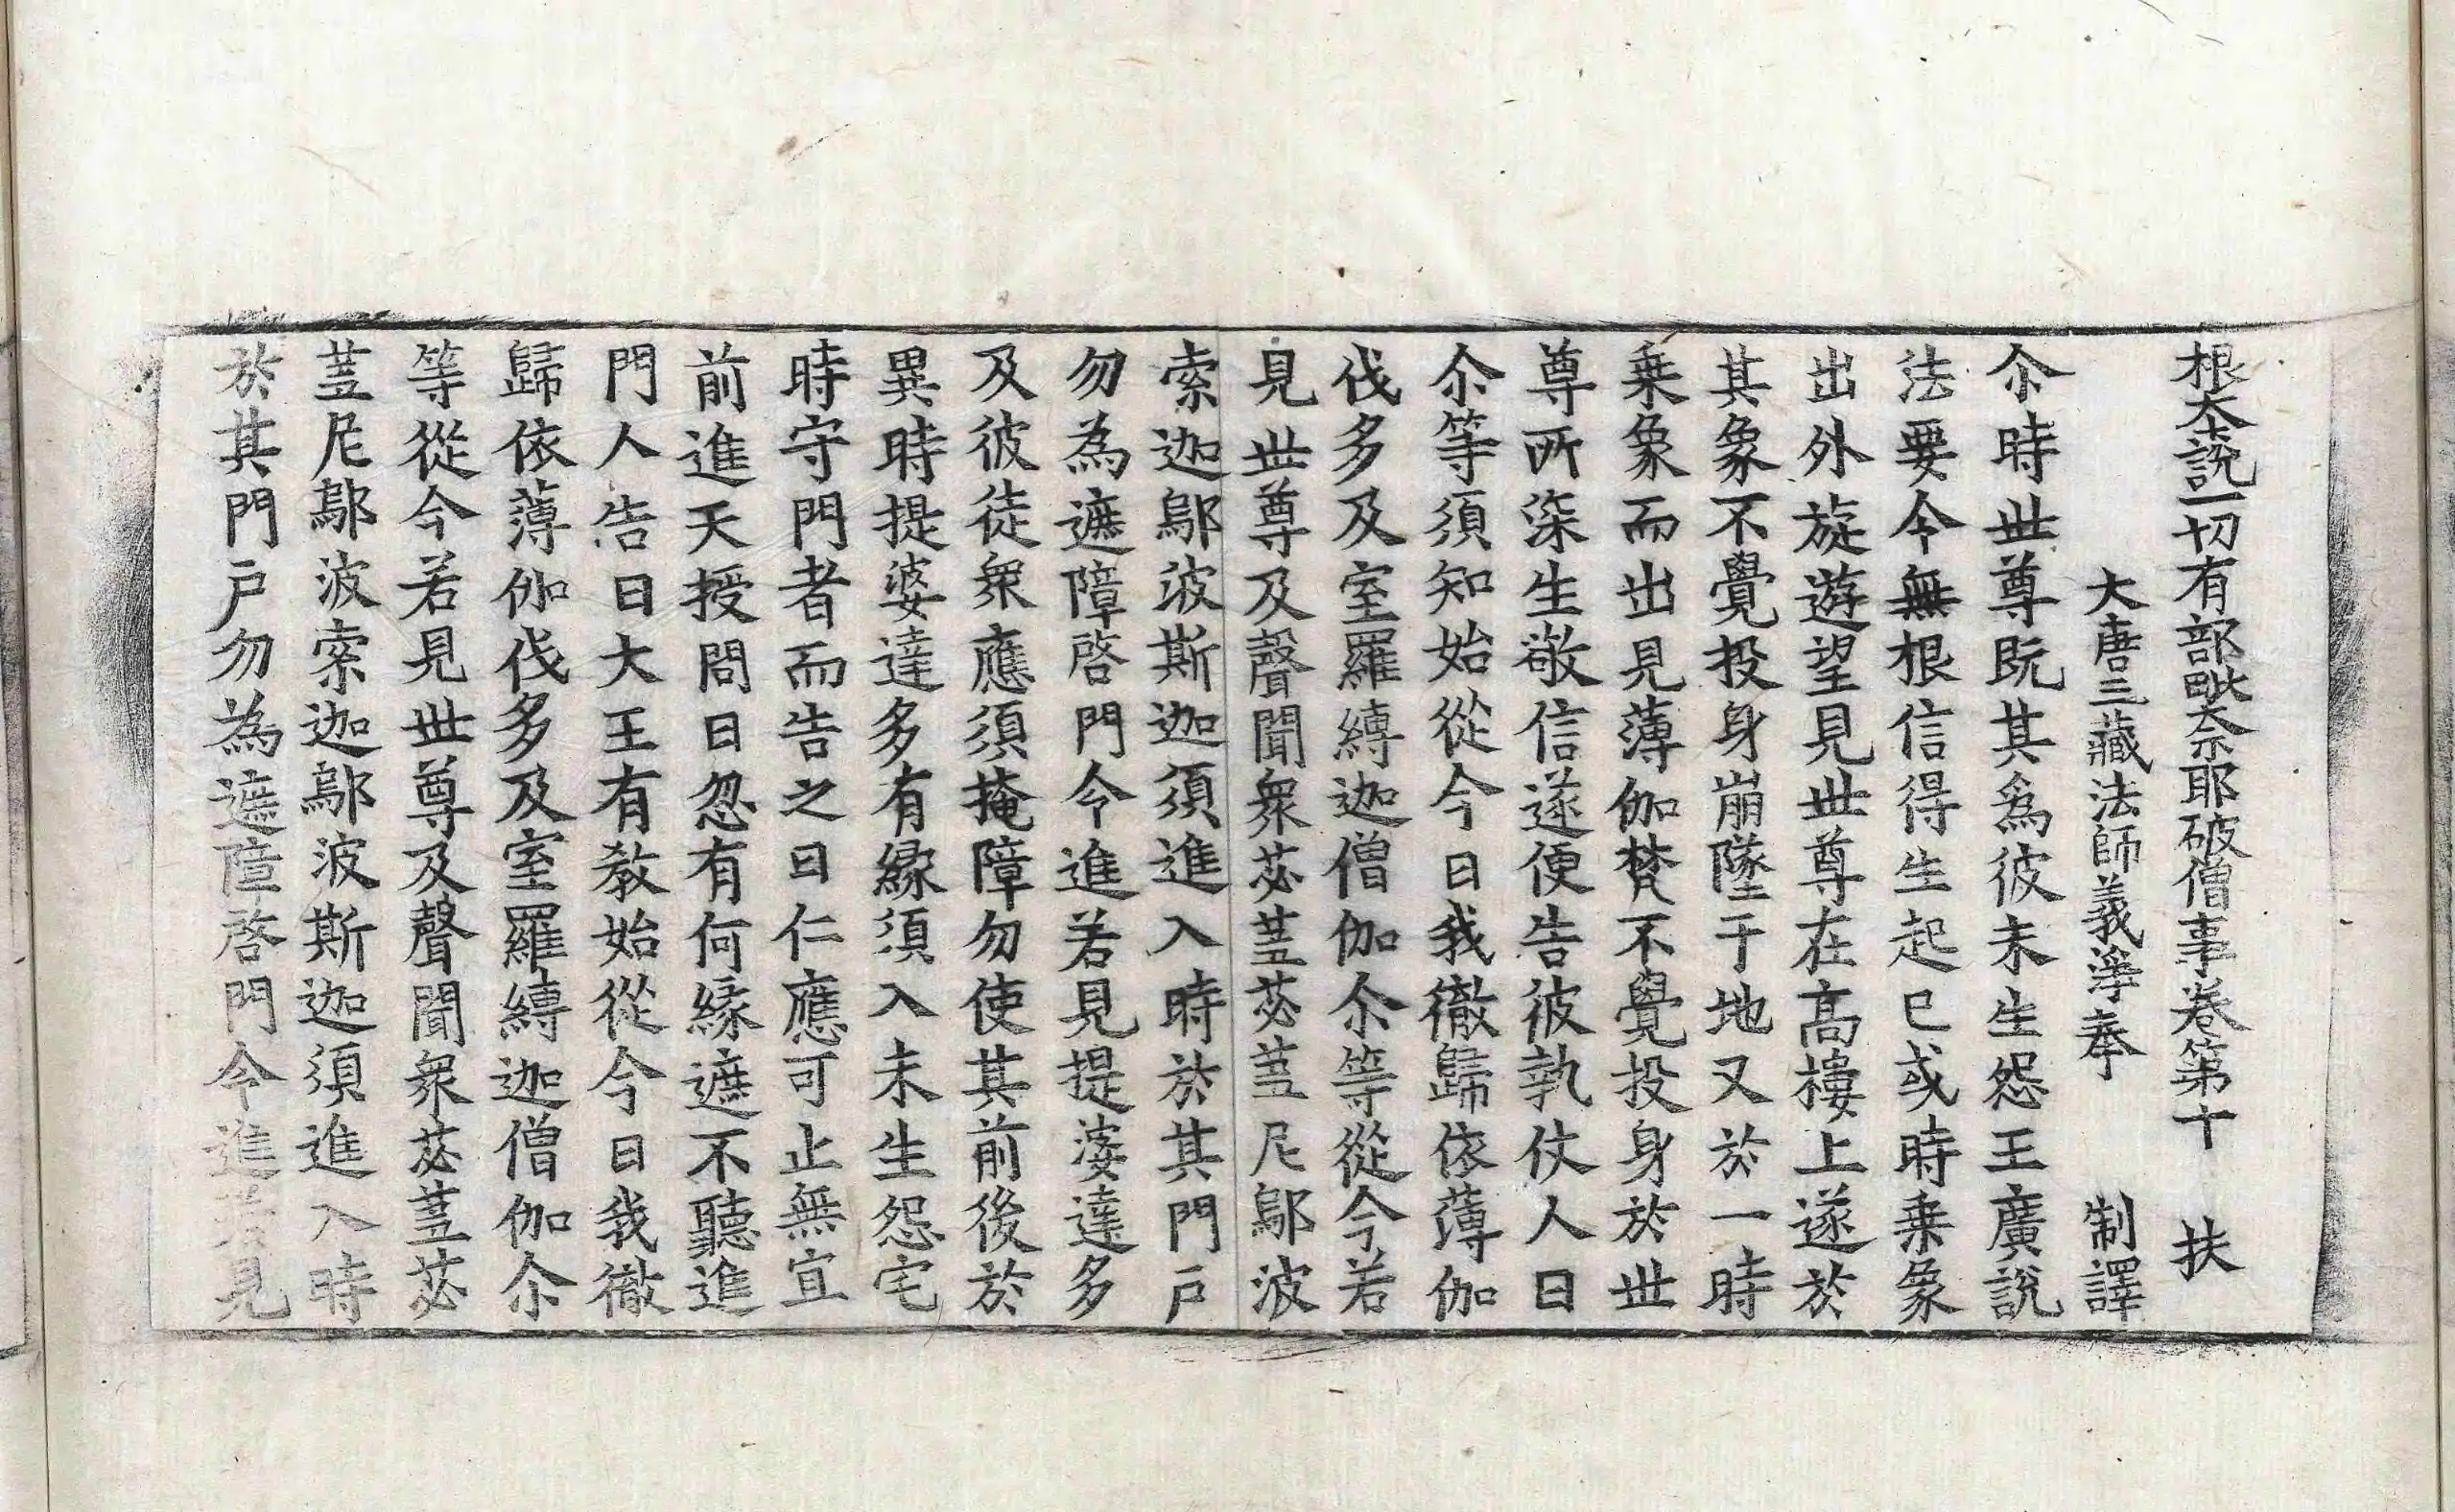 根本說一切有部毗奈耶破僧事卷第十　扶
大唐三藏法師義淨奉　制譯
尒時世尊旣其爲彼未生怨王廣說
法要令無根信得生起已或時乗象
出外旋遊望見世尊在高樓上遂於
其象不覺投身崩墜于地又於一時
乗象而出見薄伽梵不覺投身於世
尊所深生敬信遂便告彼執仗人曰
尒等須知始從今日我徹歸依薄伽
伐多及室羅縛迦僧伽尒等從今若
見世尊及聲聞衆苾蒭苾蒭尼鄔波
索迦鄔波斯迦須進入時於其門戶
勿為遮障啓門令進若見提婆達多
及彼徒衆應須掩障勿使其前後於
異時提婆達多有緣須入未生怨宅
時守門者而告之曰仁應可止無宜
前進天授問曰忽有何緣遮不聽進
門人告曰大王有教始從今日我徹
歸依薄伽伐多及室羅縛迦僧伽尒
等從今若見世尊及聲聞衆苾蒭苾
蒭尼鄔波索迦鄔波斯迦須進入時
於其門戶勿為遮障啓門令進若見